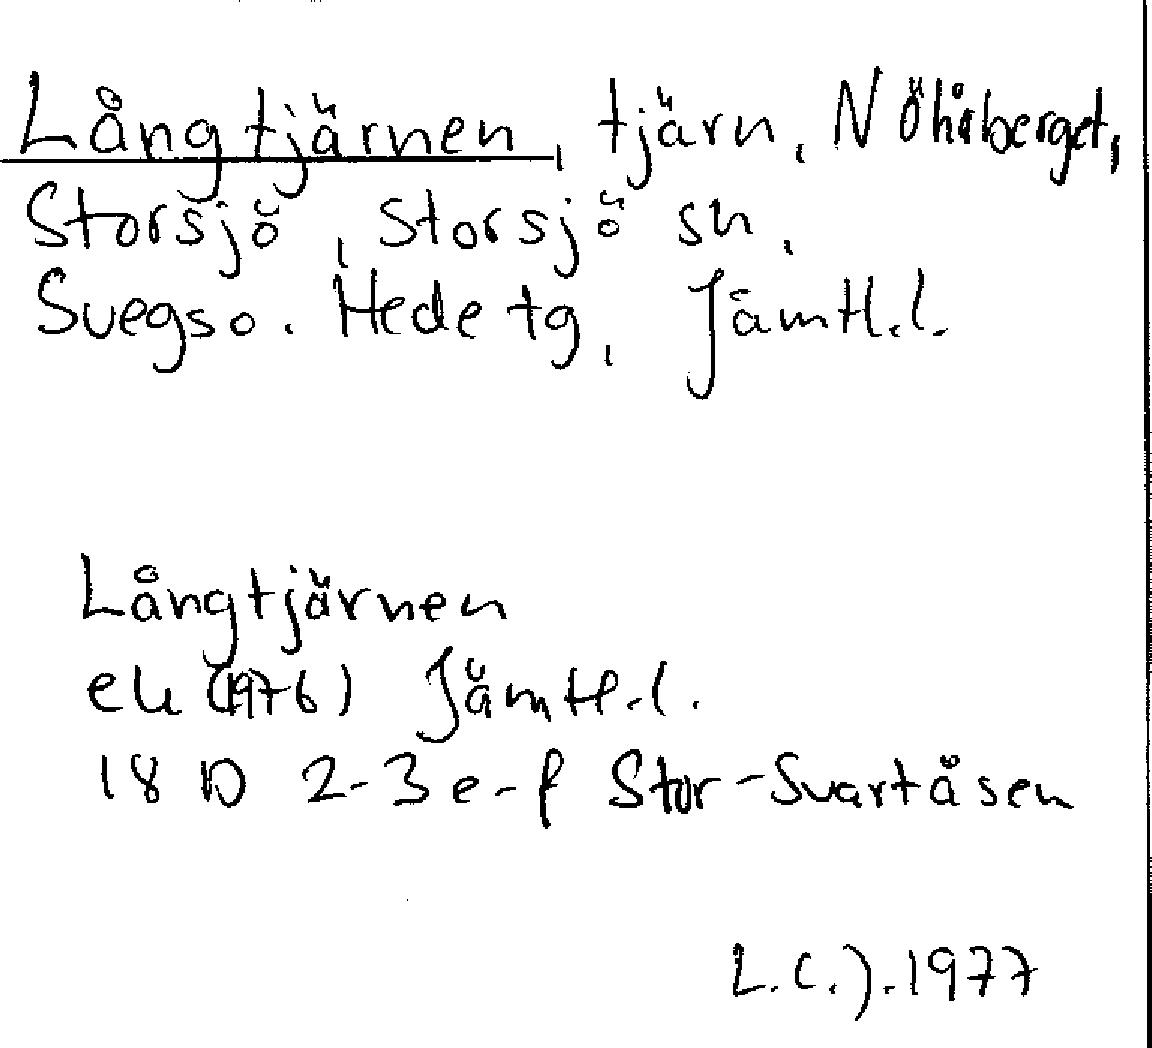 Långtjärnen, tjärn, N Öhånberget,
Storsjö, Storsjö sn,
Svegs o. Hede tg, Jämtl.l.
Långtjärnen
ek (1976) Jämtl.l.
18 D 2-3 e-f Stor-Svartåsen
L.C.J. 1977